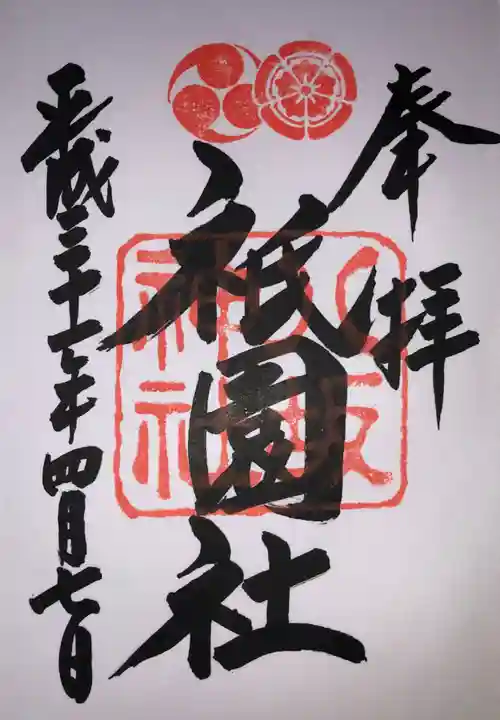 奉拝
八坂
神社
祇園社
平成三十一年四月七日